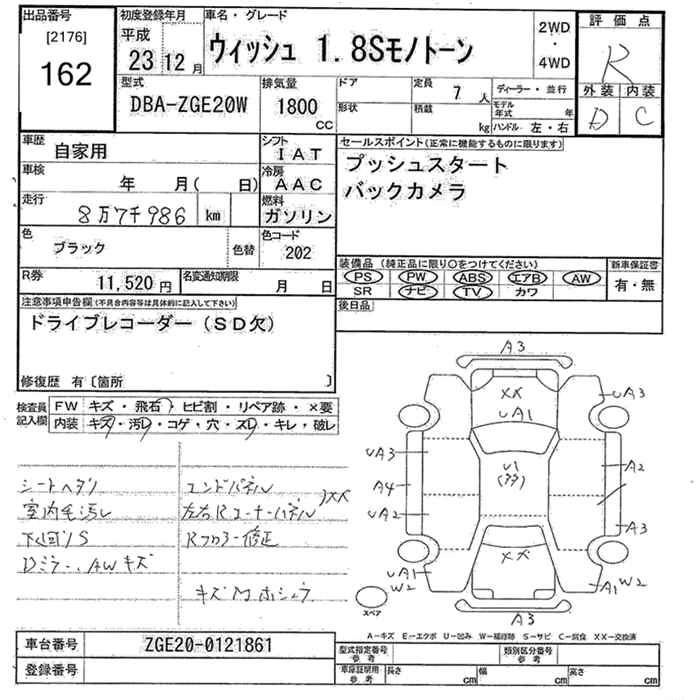 出品番号
[2176]
162
初度登録年月
平成
23 12月
車名・グレード
ウィッシュ 1.8Sモノトーン
2WD
・
4WD
評価点
R
外装 内装
D C
型式
DBA-ZGE20W
排気量
1800
cc
ドア
形状
定員 7 人
積載 kg
ディーラー・並行
モデル年式 年
ハンドル 左・右
車歴
自家用
シフト
IAT
車検
年 月( 日)
冷房
AAC
走行
8万7千986 km
燃料
ガソリン
色
ブラック
色替
色コード
202
R券
11,520円
名変通知期限
月 日
セールスポイント(正常に機能するものに限ります)
プッシュスタート
バックカメラ
装備品 (純正品に限り○をつけてください)
PS PW ABS エアB AW
SR ナビ TV カワ
新車保証書
有・無
後日品
注意事項申告欄(不具合内容等は具体的に記入して下さい)
ドライブレコーダー(SD欠)
修復歴 有〔箇所 〕
検査員
記入欄
FW キズ・飛石・ヒビ割・リペア跡・×要
内装 キズ・汚レ・コゲ・穴・スレ・キレ・破レ
シートヘタリ
室内毛汚レ
下回リS
Dミラー、AWキズ
エンドパネル
左右Rコーナーパネル
XX
Rフロアー修正
キズMホシュウ
A3
XX
UA1
UA3
UA3
U1
A2
A4
UA2
A3
XX
UA1
W2
A1
W2
A3
スペア
A-キズ E-エクボ U-凹み W-補修跡 S-サビ C-腐食 XX-交換済
車台番号
ZGE20-0121861
登録番号
型式指定番号
参考
類別区分番号
参考
車庫証明用
参考
長さ cm
幅 cm
高さ cm